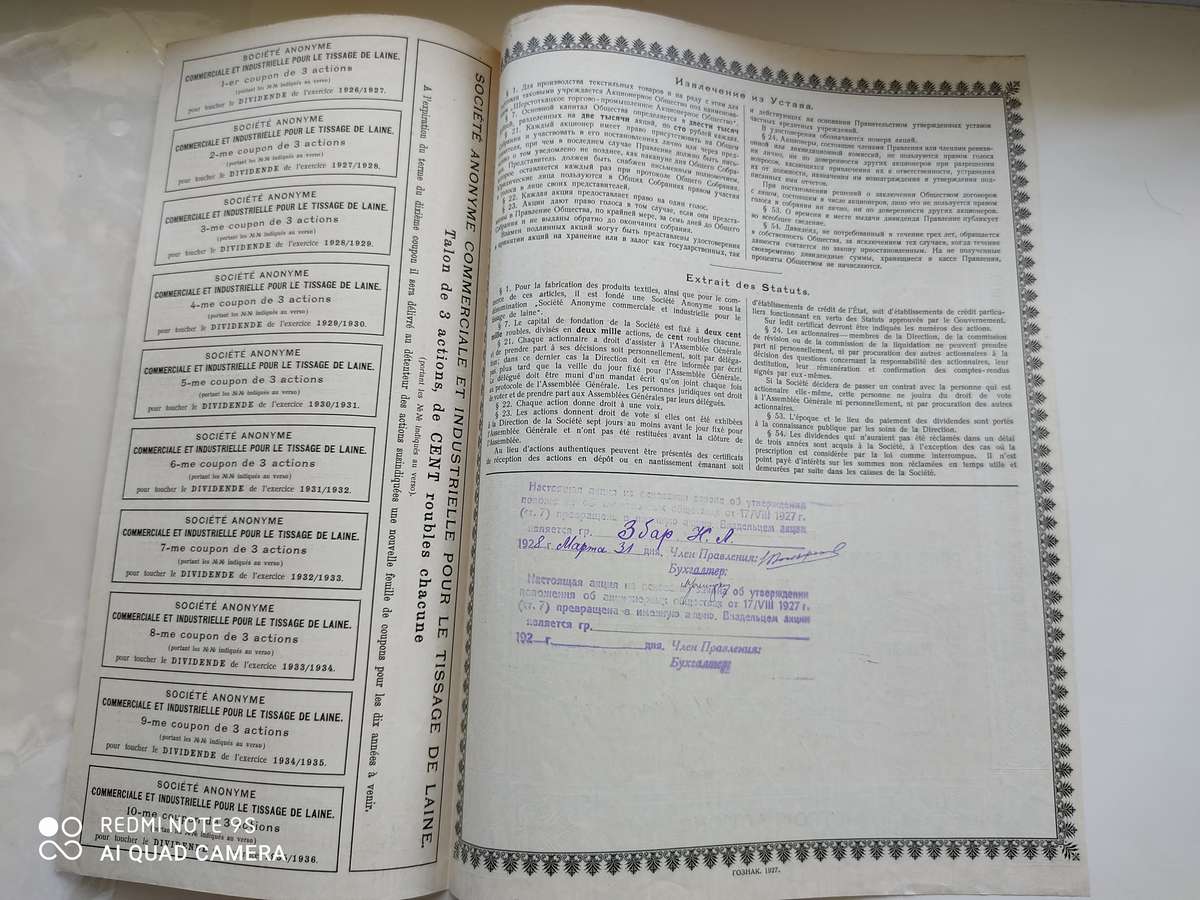 SOCIÉTÉ ANONYME
COMMERCIALE ET INDUSTRIELLE POUR LE TISSAGE DE LAINE.
1-er coupon de 3 actions
(portant les №№ indiqués au verso)
pour toucher le DIVIDENDE de l'exercice 1926/1927.
SOCIÉTÉ ANONYME
COMMERCIALE ET INDUSTRIELLE POUR LE TISSAGE DE LAINE.
2-me coupon de 3 actions
(portant les №№ indiqués au verso)
pour toucher le DIVIDENDE de l'exercice 1927/1928.
SOCIÉTÉ ANONYME
COMMERCIALE ET INDUSTRIELLE POUR LE TISSAGE DE LAINE.
3-me coupon de 3 actions
(portant les №№ indiqués au verso)
pour toucher le DIVIDENDE de l'exercice 1928/1929.
SOCIÉTÉ ANONYME
COMMERCIALE ET INDUSTRIELLE POUR LE TISSAGE DE LAINE.
4-me coupon de 3 actions
(portant les №№ indiqués au verso)
pour toucher le DIVIDENDE de l'exercice 1929/1930.
SOCIÉTÉ ANONYME
COMMERCIALE ET INDUSTRIELLE POUR LE TISSAGE DE LAINE.
5-me coupon de 3 actions
(portant les №№ indiqués au verso)
pour toucher le DIVIDENDE de l'exercice 1930/1931.
SOCIÉTÉ ANONYME
COMMERCIALE ET INDUSTRIELLE POUR LE TISSAGE DE LAINE.
6-me coupon de 3 actions
(portant les №№ indiqués au verso)
pour toucher le DIVIDENDE de l'exercice 1931/1932.
SOCIÉTÉ ANONYME
COMMERCIALE ET INDUSTRIELLE POUR LE TISSAGE DE LAINE.
7-me coupon de 3 actions
(portant les №№ indiqués au verso)
pour toucher le DIVIDENDE de l'exercice 1932/1933.
SOCIÉTÉ ANONYME
COMMERCIALE ET INDUSTRIELLE POUR LE TISSAGE DE LAINE.
8-me coupon de 3 actions
(portant les №№ indiqués au verso)
pour toucher le DIVIDENDE de l'exercice 1933/1934.
SOCIÉTÉ ANONYME
COMMERCIALE ET INDUSTRIELLE POUR LE TISSAGE DE LAINE.
9-me coupon de 3 actions
(portant les №№ indiqués au verso)
pour toucher le DIVIDENDE de l'exercice 1934/1935.
SOCIÉTÉ ANONYME
COMMERCIALE ET INDUSTRIELLE POUR LE TISSAGE DE LAINE.
10-me coupon de 3 actions
indiqués au verso)
pour toucher le /1936.
SOCIÉTÉ ANONYME COMMERCIALE ET INDUSTRIELLE POUR LE TISSAGE DE LAINE.
Talon de 3 actions, de CENT roubles chacune
(portant les №№ indiqués au verso).
A l'expiration du terme du dixième coupon il sera délivré au détenteur des actions susindiquées une nouvelle feuille de coupons pour les dix années à venir.
Извлечение из Устава.
§ 1. Для производства текстильных товаров и на ряду с этим для
таковыми учреждается Акционерное Общество под наименова-
„Шерстоткацкое торгово-промышленное Акционерное Общество".
7. Основной капитал Общества определяется в двести тысяч
разделенных на две тысячи акций, по сто рублей каждая.
21. Каждый акционер имеет право присутствовать на Общем
и участвовать в его постановлениях лично или через пред-
при чем в последнем случае Правление должно быть пись-
о том уведомлено не позднее, как накануне дня Общего Собра-
Представитель должен быть снабжен письменным полномочием,
оставляется каждый раз при протоколе Общего Собрания.
лица пользуются в Общих Собраниях правом участия
голоса в лице своих представителей.
§ 22. Каждая акция предоставляет право на один голос.
§ 23. Акции дают право голоса в том случае, если они предъ-
в Правление Общества, по крайней мере, за семь дней до Общего
Собрания и не выданы обратно до окончания собрания.
Взамен подлинных акций могут быть представлены удостоверения
принятии акций на хранение или в залог как государственных, так
и действующих на основании Правительством утвержденных уставов
частных кредитных учреждений.
В удостоверении обозначаются номера акций.
§ 24. Акционеры, состоящие членами Правления или членами ревизи-
онной или ликвидационной комиссий, не пользуются правом голоса
ни лично, ни по доверенности других акционеров при разрешении
вопросов, касающихся привлечения их к ответственности, устранения
их от должности, назначения им вознаграждения и утверждения под-
писанных ими отчетов.
При постановлении решений о заключении Обществом договоров
с лицом, состоящим в числе акционеров, лицо это не пользуется правом
голоса в собрании ни лично, ни по доверенности других акционеров.
§ 53. О времени и месте выдачи дивиденда Правление публикует
во всеобщее сведение.
§ 54. Дивиденд, не потребованный в течение трех лет, обращается
в собственность Общества, за исключением тех случаев, когда течение
давности считается по закону приостановленным. На не полученные
своевременно дивидендные суммы, хранящиеся в кассе Правления,
проценты Обществом не начисляются.
Extrait des Statuts.
§ 1. Pour la fabrication des produits textiles, ainsi que pour le com-
merce de ces articles, il est fondé une Société Anonyme sous la
dénomination „Société Anonyme commerciale et industrielle pour le
tissage de laine".
§ 7. Le capital de fondation de la Société est fixé à deux cent
mille roubles, divisés en deux mille actions, de cent roubles chacune.
§ 21. Chaque actionnaire a droit d'assister à l'Assemblée Générale
et de prendre part à ses décisions soit personnellement, soit par déléga-
tion; dans ce dernier cas la Direction doit en être informée par écrit
pas plus tard que la veille du jour fixé pour l'Assemblée Générale.
Le délégué doit être muni d'un mandat écrit qu'on joint chaque fois
au protocole de l'Assemblée Générale. Les personnes juridiques ont droit
de voter et de prendre part aux Assemblées Générales par leurs délégués.
§ 22. Chaque action donne droit à une voix.
§ 23. Les actions donnent droit de vote si elles ont été exhibées
à la Direction de la Société sept jours au moins avant le jour fixé pour
l'Assemblée Générale et n'ont pas été restituées avant la clôture de
l'Assemblée.
Au lieu d'actions authentiques peuvent être présentés des certificats
de réception des actions en dépôt ou en nantissement émanant soit
d'établissements de crédit de l'État, soit d'établissements de crédit particu-
liers fonctionnant en vertu des Statuts approuvés par le Gouvernement.
Sur ledit certificat devront être indiqués les numéros des actions.
§ 24. Les actionnaires—membres de la Direction, de la commission
de révision ou de la commission de la liquidation ne peuvent prendre
part ni personnellement, ni par procuration des autres actionnaires à la
décision des questions concernant la responsabilité des actionnaires, leur
destitution, leur rémunération et confirmation des comptes-rendus
signés par eux-mêmes.
Si la Société décidera de passer un contrat avec la personne qui est
actionnaire elle-même, cette personne ne jouira du droit de vote
à l'Assemblée Générale ni personnellement, ni par procuration des autres
actionnaires.
§ 53. L'époque et le lieu du paiement des dividendes sont portés
à la connaissance publique par les soins de la Direction.
§ 54. Les dividendes qui n'auraient pas été réclamés dans un délai
de trois années sont acquis à la Société, à l'exception des cas où la
prescription est considérée par la loi comme interrompue. Il n'est
point payé d'intérêts sur les sommes non réclamées en temps utile et
demeurées par suite dans les caisses de la Société.
Настоящая акция на основании закона об утверждении
обществах от 17/VIII 1927 г.
(ст. 7) превращена Владельцем акции
является гр. Збар Н. Л.
1928 г Марта 31 дня. Член Правления:
Бухгалтер:
Настоящая акция на об утверждении
положения об акционерных обществах от 17/VIII 1927 г.
(ст. 7) превращена в именную акцию. Владельцем акции
является гр.
192 г. дня. Член Правления:
Бухгалтер:
ГОЗНАК. 1927.
REDMI NOTE 9S
AI QUAD CAMERA